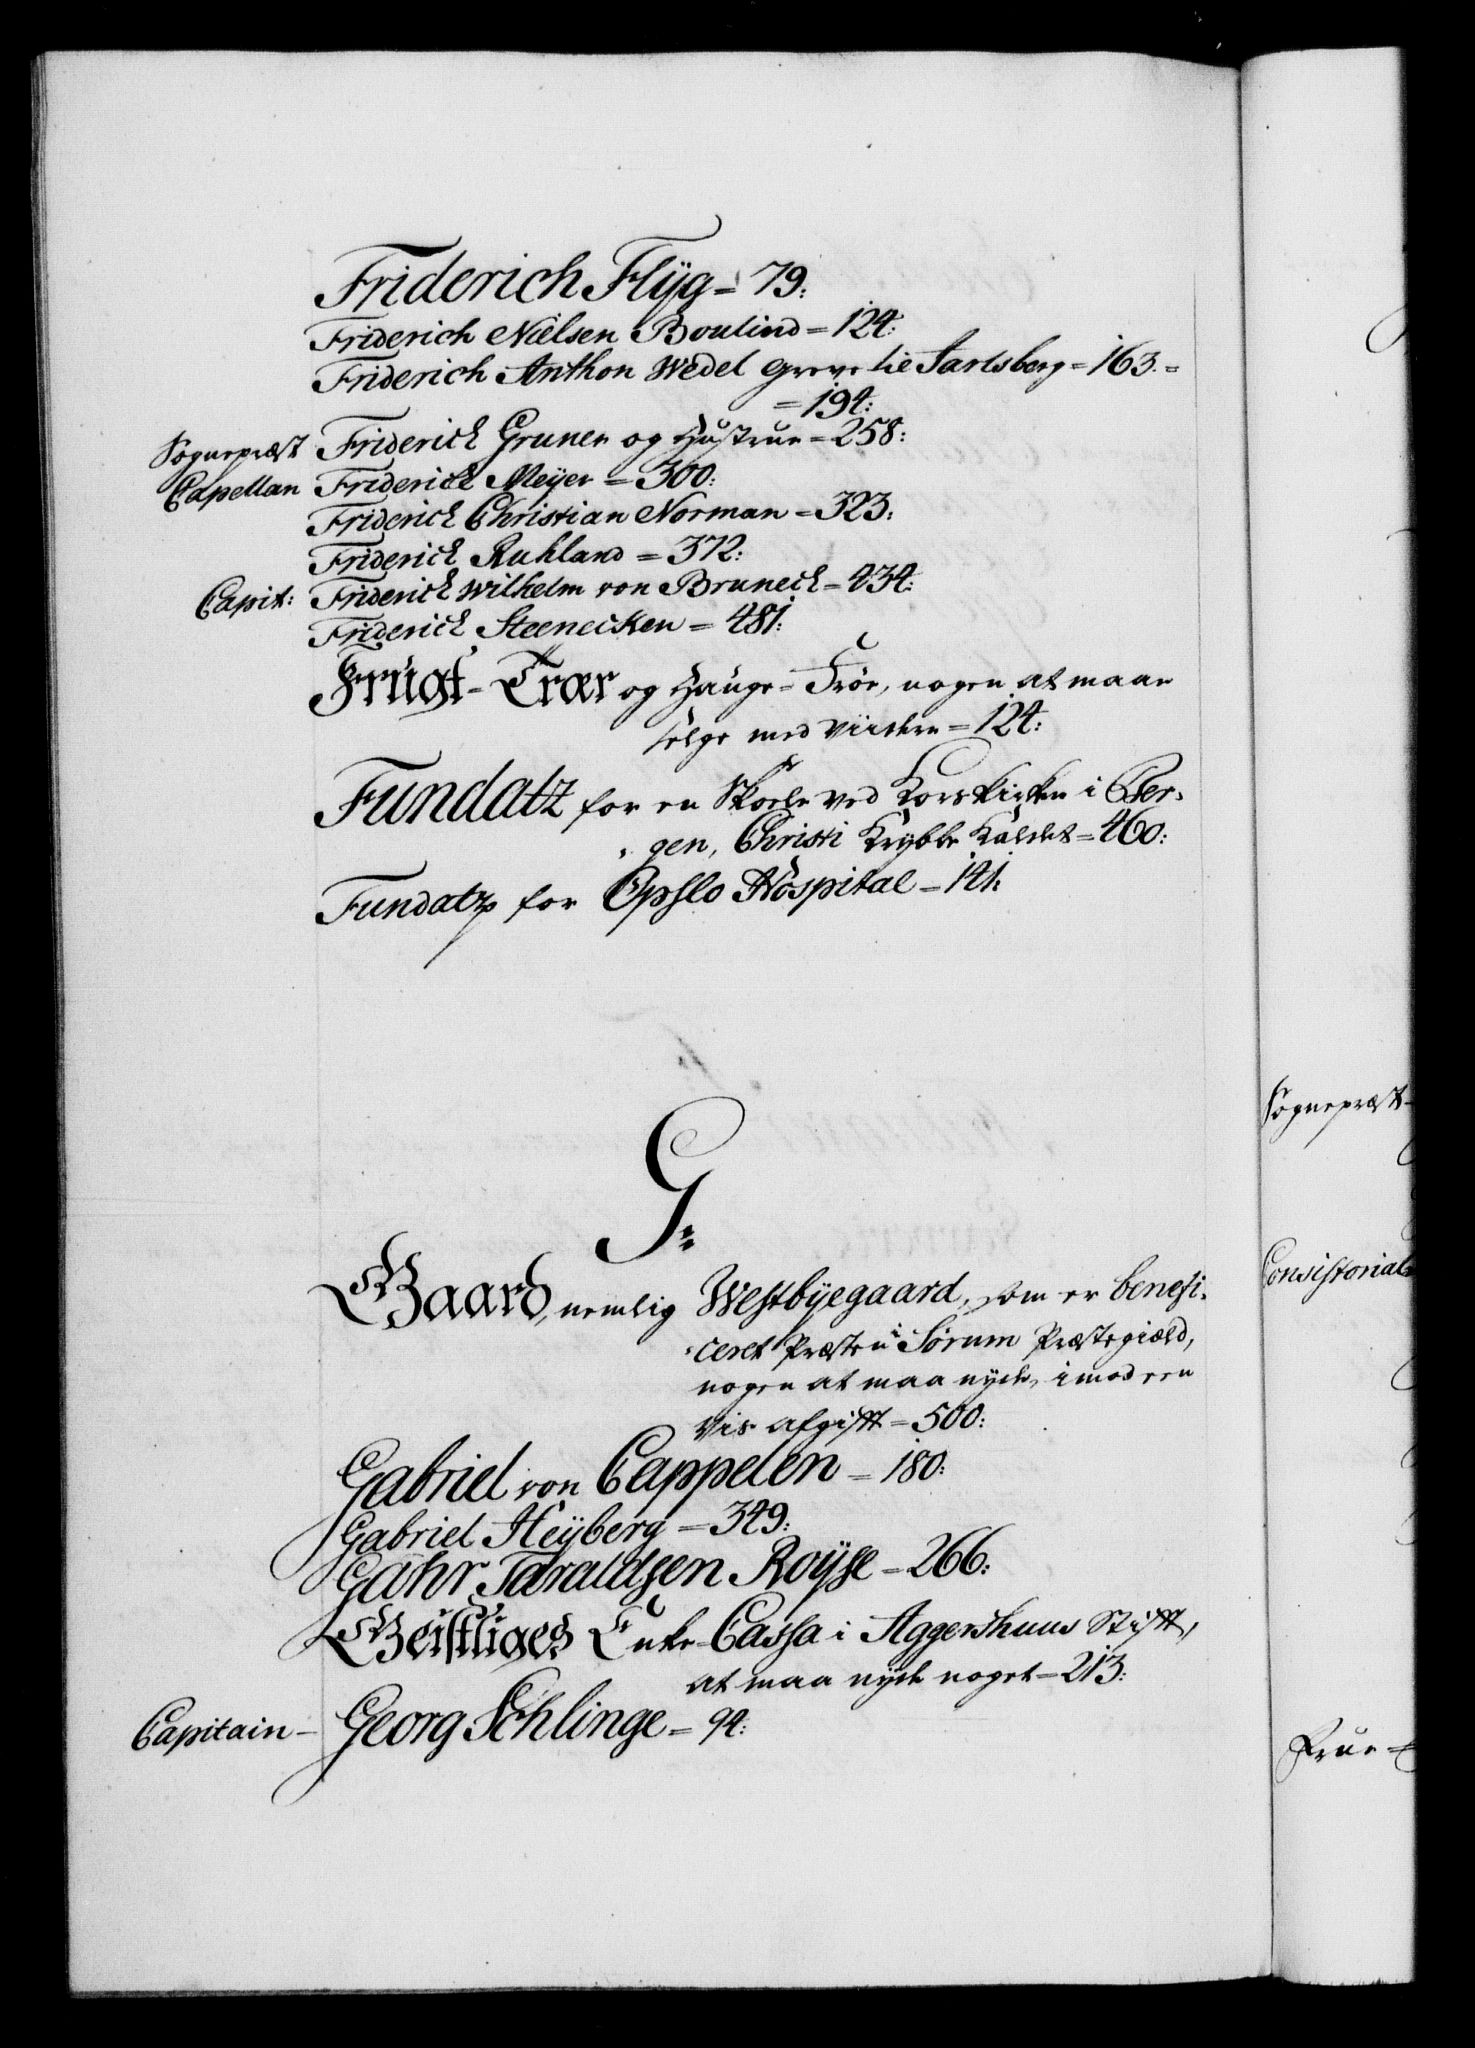 Friderich Flÿg = 79:
Friderich Nielsen Boulind = 124:
Friderich Anthon Wedel Greve til Jarlsberg = 163. =
= 194:
Sognepræst Friderich Gruner og Hustrue = 258:
Capellan Friderich Meÿer = 300:
Friderich Christian Norman = 323:
Friderich Ruhland = 372:
Capit: Friderich Wilhelm von Bruneck = 434:
Friderich Steenecken = 481:
Frugt-Træer og Hauge-Frøe, nogen at maae
selge med Viidere = 124:
Fundatz for en Skoele ved Korskirken i Ber-
gen, Christi Krybbe Kaldet = 460:
Fundatz for Opslo Hospital = 141:
G:
Gaard, nemlig Westbÿegaard, som er benefi-
ceret Præsten i Sørum Præstegiæld,
nogen at maa nyde, imod een
vis afgifft = 500:
Gabriel von Cappelen = 180:
Gabriel Heÿberg = 349:
Gahr Taraldsen Roÿse = 266:
Geistliges Enke-Cassa i Aggershuus Stifft,
at maa nyde noget = 213:
Capitain - Georg Schlinge = 94:
Sognepræst -
Consistorial
Frue =